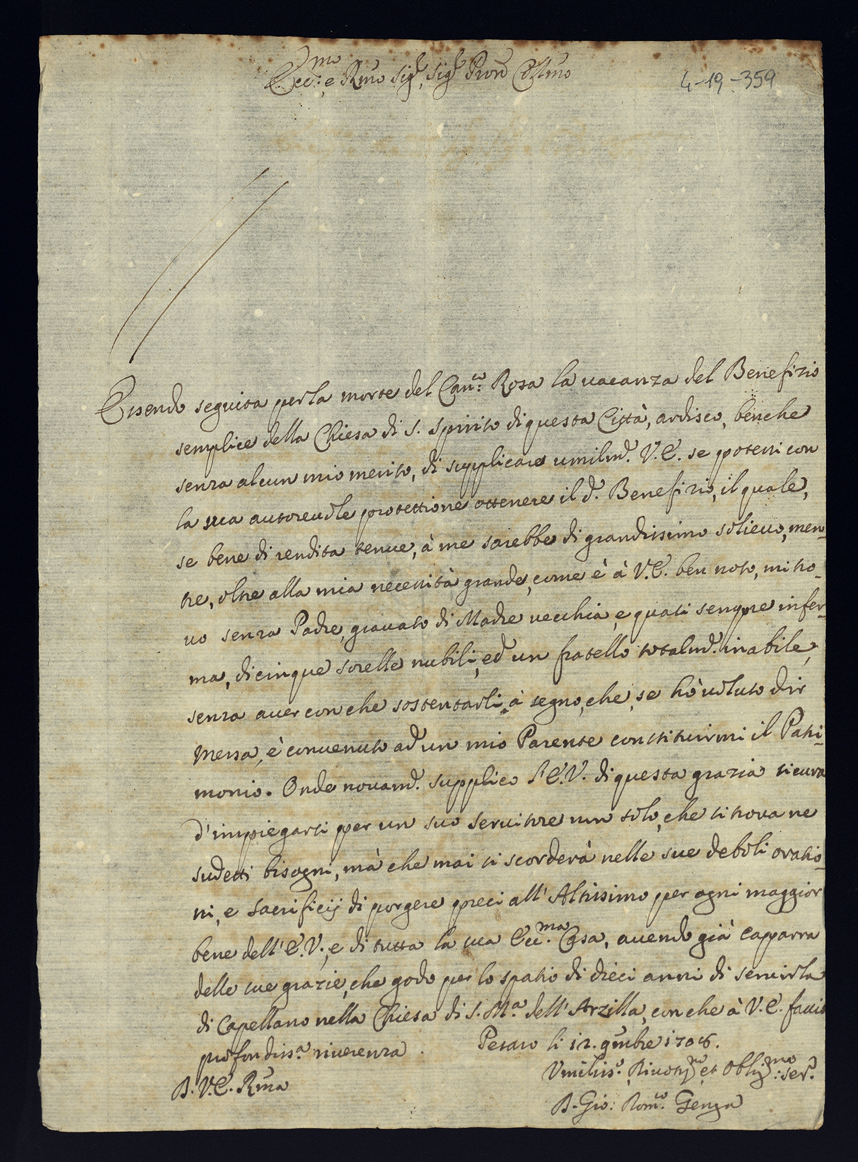 Ecc:mo e Rmo Sigr, Sigr Pron Colmo
4-19-359
Essendo seguita per la morte del Can:co Rosa la vacanza del Benefizio
semplice della Chiesa di S. Spirito di questa Città, ardisco, benche
senza alcun mio merito, di supplicare umilmte. V.E. se potessi con
la sua autorevole protettione ottenere il do. Benefizio, il quale,
se bene di rendita tenue, à me sarebbe di grandissimo solievo, men-
tre, oltre alla mia necessità grande, come è à V.E. ben noto, mi tro-
vo senza Padre, gravato di Madre vecchia, e quasi sempre infer-
ma, di cinque sorelle nubili, ed un fratello totalmte. inabile,
senza aver con che sostentarli, à segno, che, se hò voluto dir
Messa, è convenuto ad un mio Parente constituirmi il Patri-
monio. Onde novamte. supplico l'E.V. di questa grazia sicura
d'impiegarsi per un suo servitore non solo, che si trova ne
sudetti bisogni, mà che mai si scorderà nelle sue deboli oratio-
ni, e sacrificij di porgere preci all'Altissimo per ogni maggior
bene dell'E.V., e di tutta la sua Ecc:ma Casa, avendo già capparra
delle sue grazie, che godo per lo spatio di dieci anni di servirla
di Capellano nella Chiesa di S. Ma. dell'Arzilla, con che à V.E. faccio
profondissa. riverenza. Pesaro li 12. 9mbre 1706.
D. V.E. Rma
Umiliso., Divotmo., et Obligmo: ser.
D. Gio: Romco. Genga